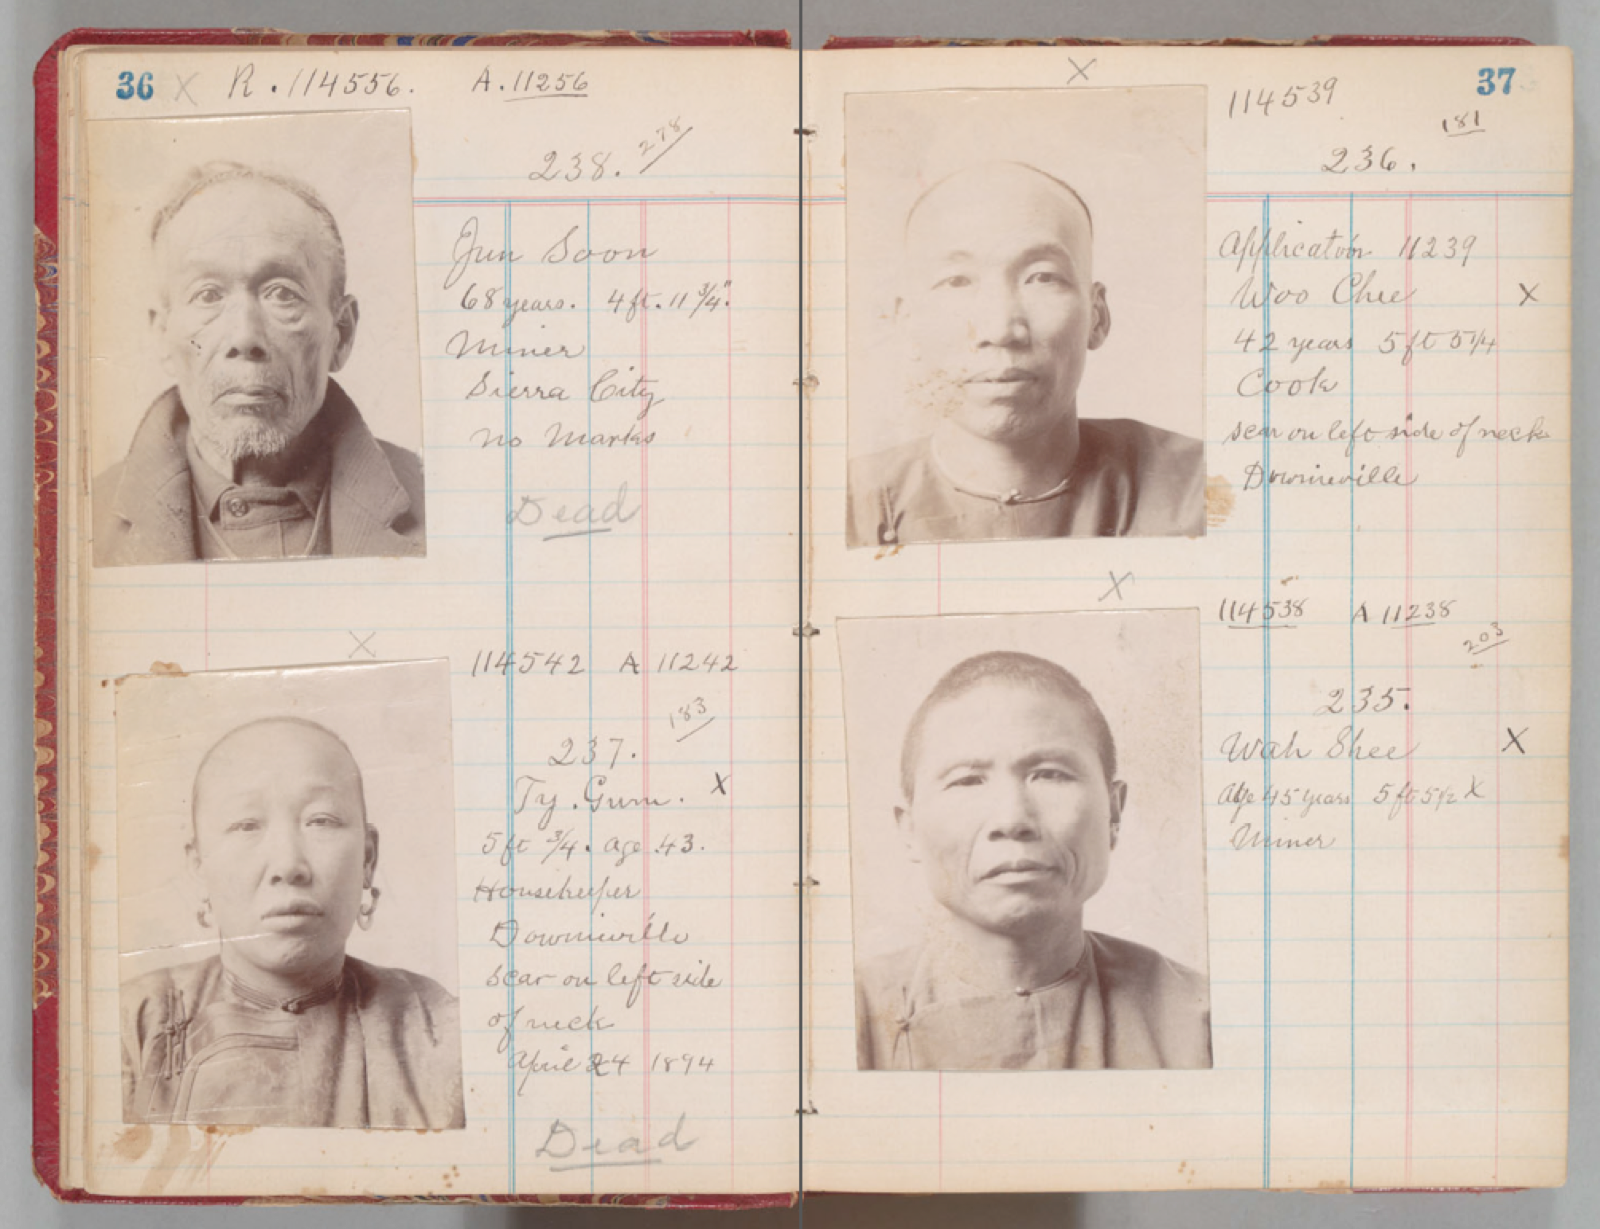 36 X R. 114556. A. 11256
238. 278
Jun Soon
68 years. 4 ft. 11 3/4".
Miner
Sierra City
no marks
Dead
X
114542 A 11242
183
237.
Ty. Gum. X
5 ft 3/4. age 43.
Housekeeper
Downieville
scar on left side
of neck
April 24 1894
Dead
X
114539 37
181
236.
Application 11239
Woo Chee X
42 years 5 ft 5 1/4
Cook
scar on left side of neck
Downieville
X
114538 A 11238
203
235.
Wah Shee X
Age 45 years 5 ft 5 1/2 X
Miner